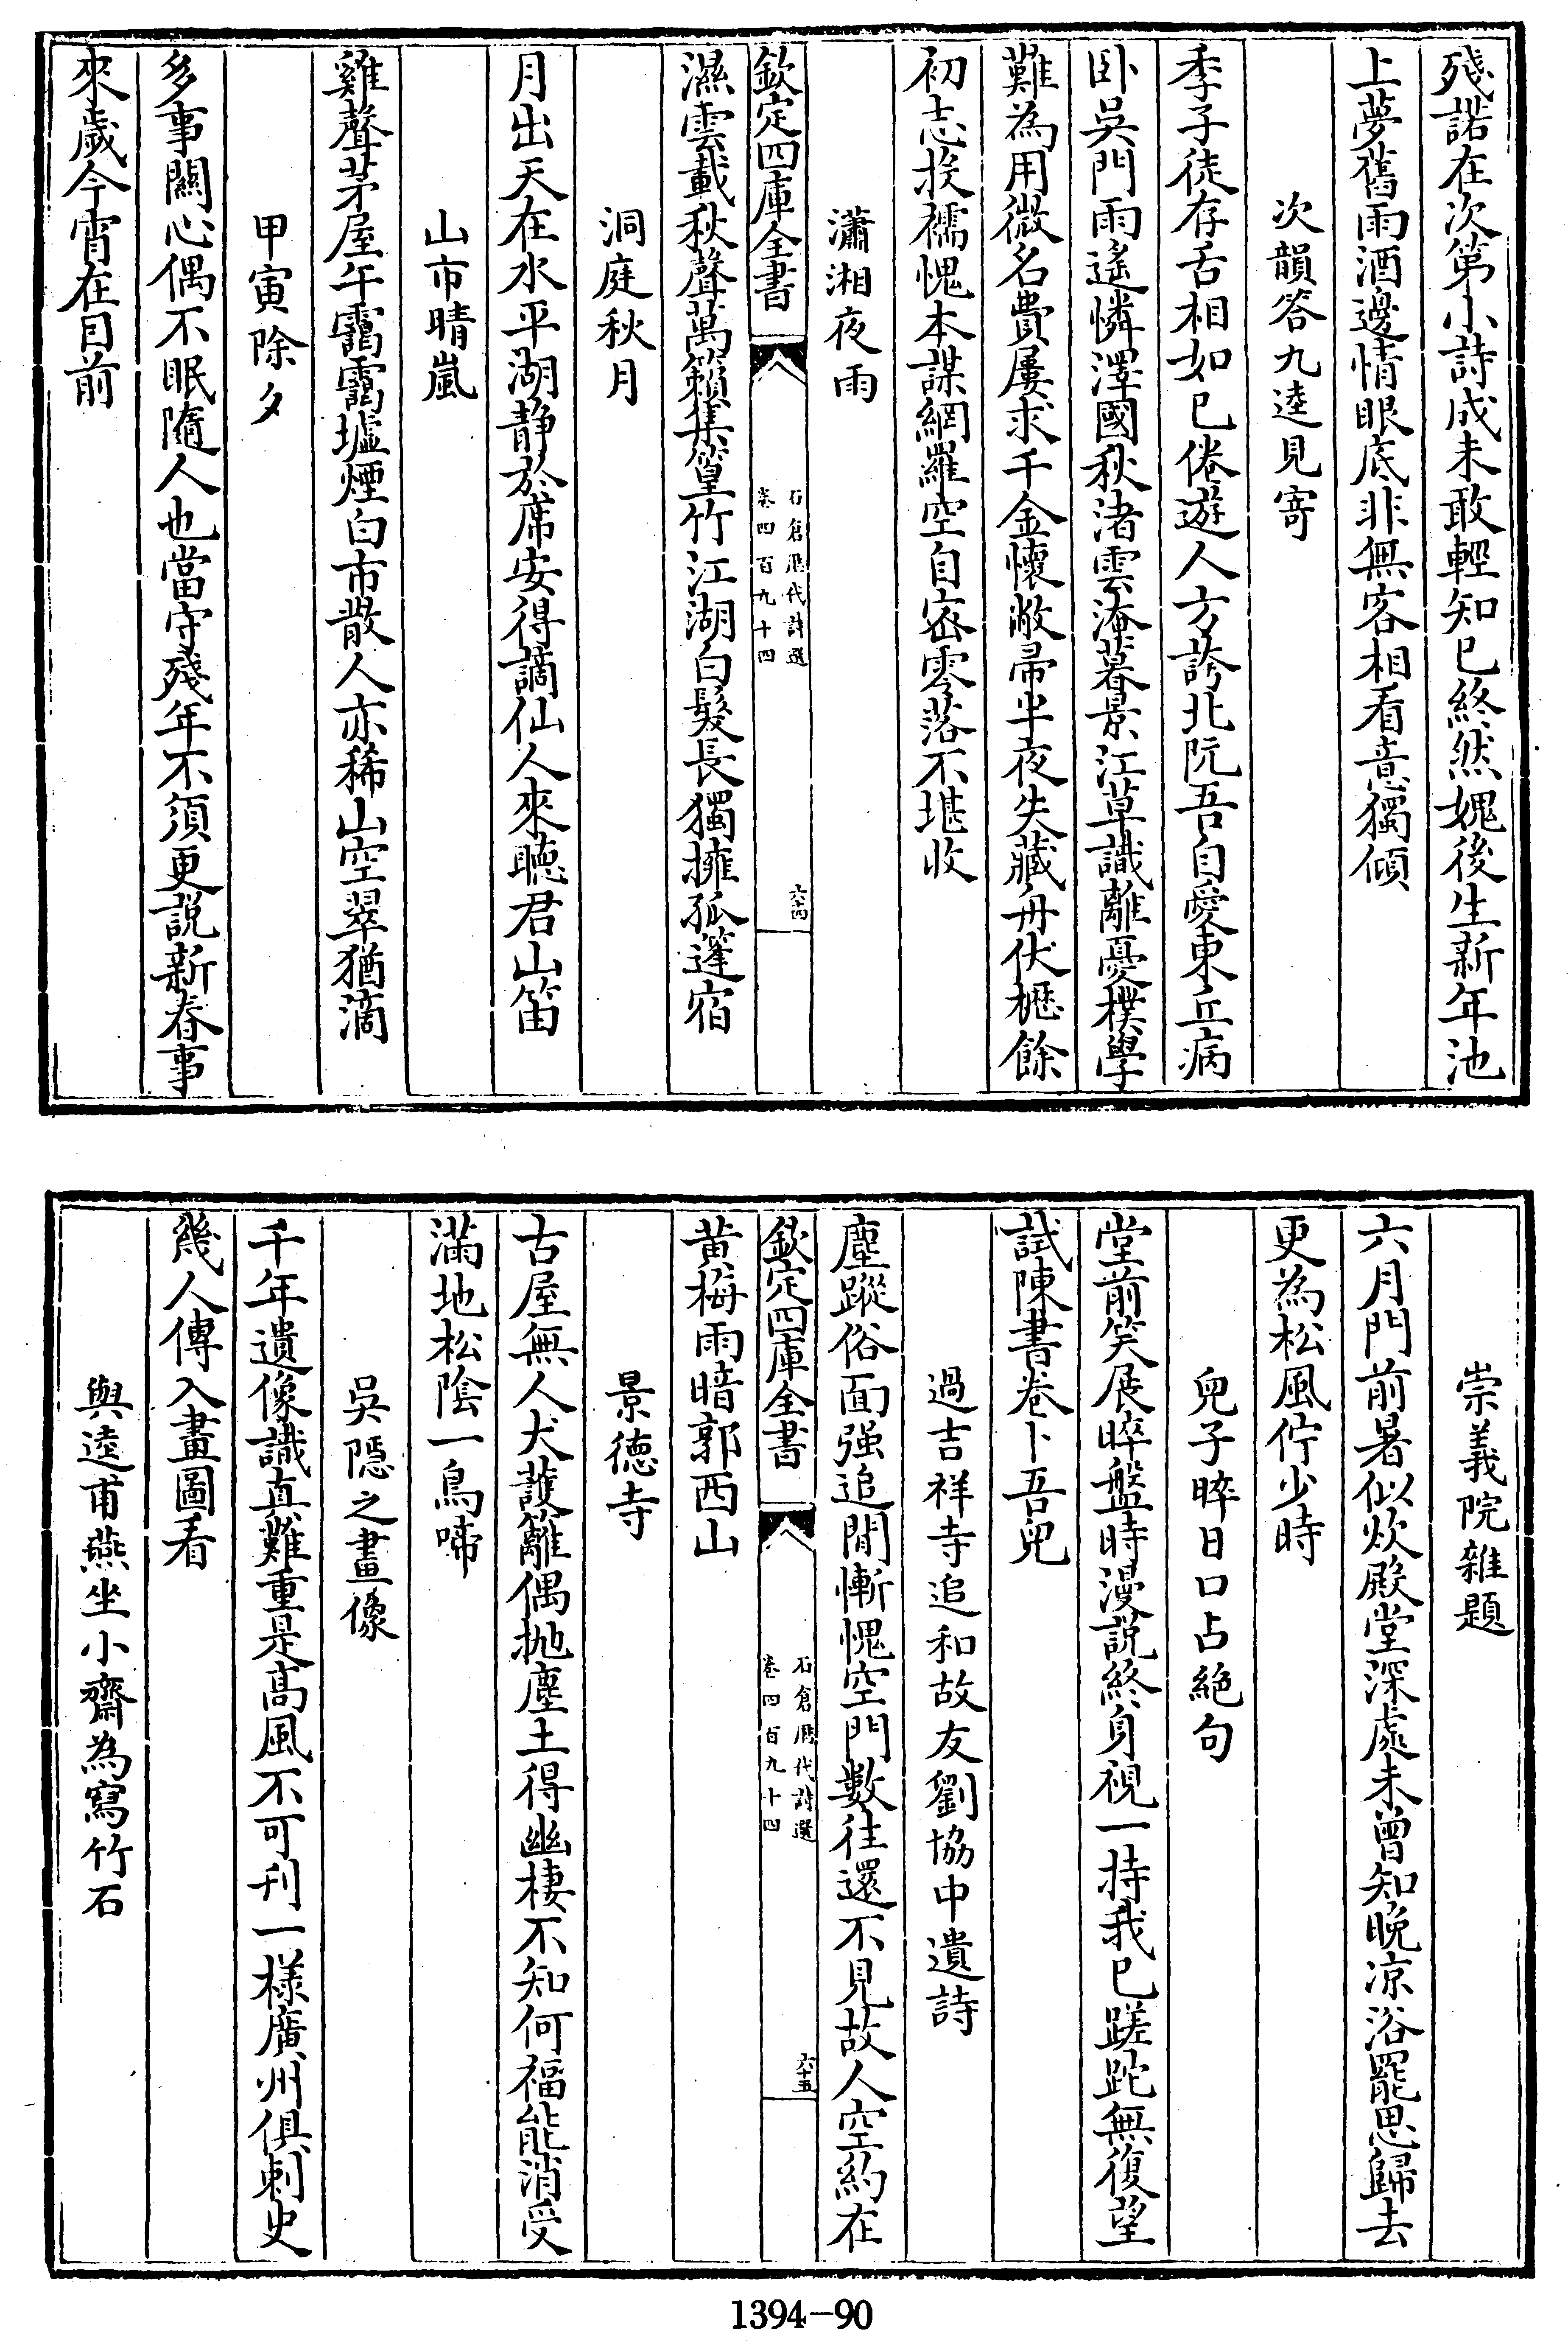 殘諾在次第小詩成未敢輕知已終然媿後生新年池
上夢舊雨酒邊情眼底非無客相看意獨傾
次韻答九逵見寄
季子徒存舌相如已倦遊人方誇北阮吾自愛東丘病
卧吳門雨遙憐澤國秋渚雲淹暮景江草識離憂樸學
難為用微名費屢求千金懷敝帚半夜失藏舟伏櫪餘
初志投襦愧本謀網羅空自密零落不堪收
瀟湘夜雨
欽定四庫全書
石倉歷代詩選
卷四百九十四
六十四
濕雲載秋聲萬籟集篁竹江湖白髮長獨擁孤篷宿
洞庭秋月
月出天在水平湖靜於席安得謫仙人來聽君山笛
山市晴嵐
雞聲茅屋午靄靄墟煙白市散人亦稀山空翠猶滴
甲寅除夕
多事關心偶不眠隨人也當守殘年不須更説新春事
來歲今宵在目前
崇義院雜題
六月門前暑似炊殿堂深處未曾知晚凉浴罷思歸去
更為松風佇少時
兒子晬日口占絕句
堂前笑展晬盤時漫説終身視一持我已蹉跎無復望
試陳書卷卜吾兒
過吉祥寺追和故友劉協中遺詩
塵蹤俗面强追閒慚愧空門數往還不見故人空約在
欽定四庫全書
石倉歷代詩選
卷四百九十四
六十五
黄梅雨暗郭西山
景德寺
古屋無人犬護籬偶抛塵土得幽棲不知何福能消受
滿地松陰一鳥啼
吳隱之畫像
千年遺像識真難重是高風不可刊一樣廣州俱刺史
幾人傳入畫圖看
與逵甫燕坐小齋為寫竹石
1394-90